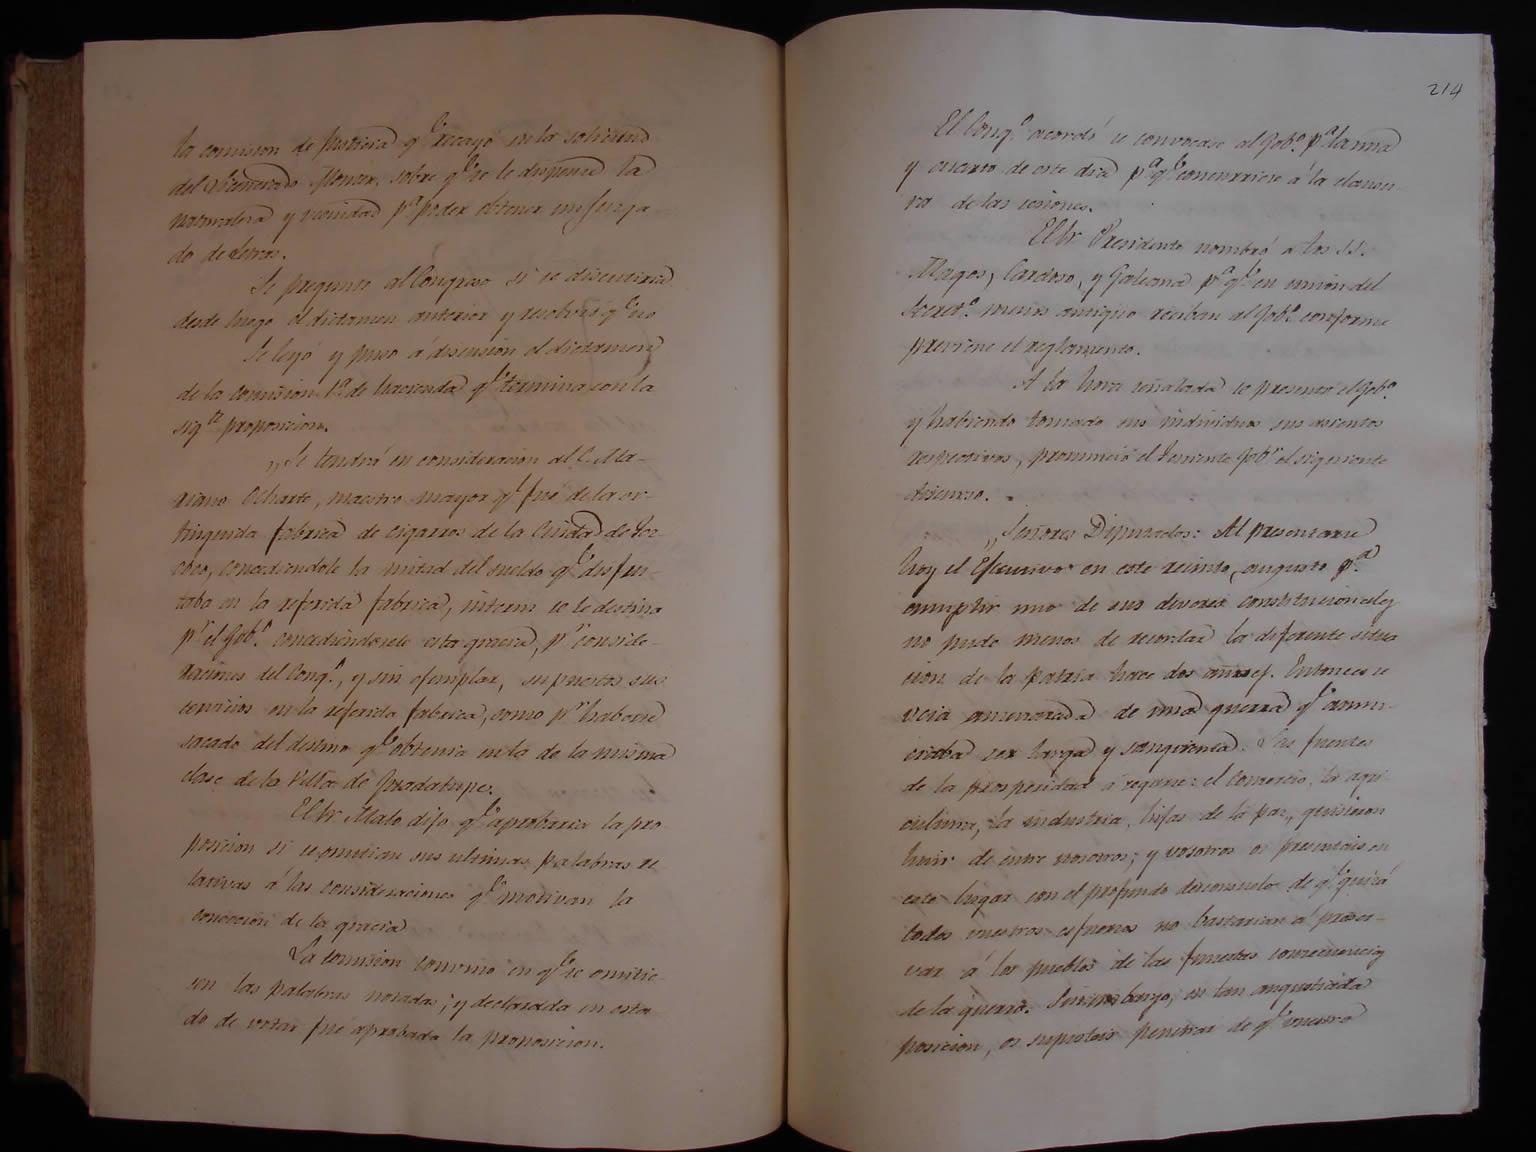 la comision de Justicia q.e recayó en la solicitud
del Licenciado sobre q.e se le dispense la
naturaleza y vecindad p.a poder obtener un juzga
do de Letras.
Se preguntó al Congreso si se discutiria
desde luego el dictamen anterior y resolvió q.e no
Se leyó y puso á discusión el dictamen
de la comision 1.a de hacienda q.e termina con la
sig.te proposicion.
„Se tendrá en consideracion al C. Ma-
riano Ocharte, maestro mayor q.e fué de la ex-
tinguida fabrica de cigarros de la Ciudad de Tex-
coco, concediendole la mitad del sueldo q.e disfru-
taba en la referida fabrica, interin se le destina
p.r el Gob.o concediendosele esta gracia, p.r conside-
raciones del Cong.o, y sin ejemplar, supuestos sus
servicios en la referida fabrica, como p.r haberse
sacado del destino q.e obtenia en la de la misma
clase de la Villa de Guadalupe.
El Sr. Malo dijo q.e aprobaria la pro
posicion si se omitian sus ultimas palabras re
lativas á las consideraciones q.e motivan la
concecion de la gracia
La comision convino en q.e se omitie-
sen las palabras notadas; y declarada en esta-
do de votar fué aprobada la proposicion.
214
El Cong.o acordó se convocase al Gob.o p.a la una
y cuarto de este dia p.a q.e concurriese á la clausu-
ra de las sesiones.
El Sr. Presidente nombró a los SS.
Magos, Cardoso, y Galeana p.a q.e en union del
Secret.o menos antiguo reciban al Gob.o conforme
previene el reglamento.
A la hora señalada se presentó el Gob.o
y habiendo tomado sus individuos sus asientos
respectivos, pronunció el Teniente Gob.r el siguiente
discurso.
„Señores Diputados: Al presentarse
hoy el Ejecutivo en este recinto augusto p.a
cumplir uno de sus deveres constitucionales
no pudo menos de recordar la diferente situa
cion de la patria hace dos años. Entonces se
veia amenazada de una guerra q.e anun-
ciaba ser larga y sangrienta. Las fuentes
de la prosperidad á segarse: el comercio, la agri
cultura, la industria, hijas de la paz, quisieron
huir de entre nosotros; y vosotros os presentais en
este lugar con el profundo desconsuelo de q.e quizá
todos vuestros esfuerzos no bastarian á preser-
var á los pueblos de las funestas consecuencias
de la guerra. Sin embargo, en tan angustiada
posicion, os supistais penetrar de q.e vuestro